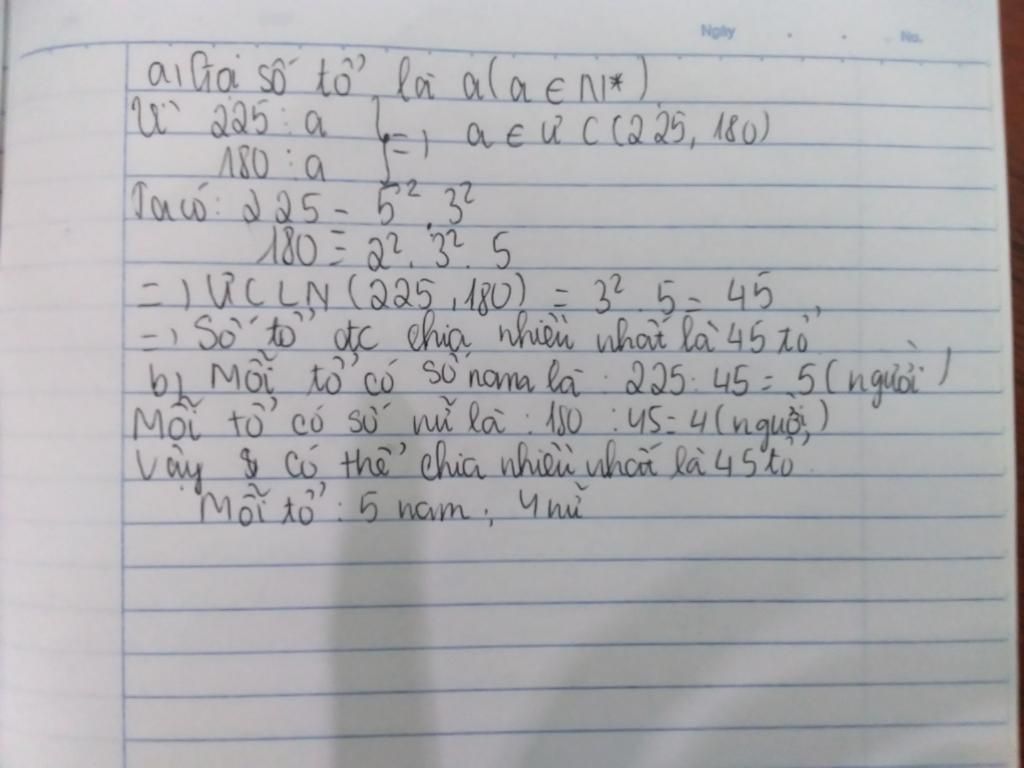 Ngày No.
a, Gọi số tổ là a (a ∈ N*)
Vì 225 : a } => a ∈ ƯC (225, 180)
180 : a
Ta có: 225 = 5² . 3²
180 = 2² . 3² . 5
=> ƯCLN (225, 180) = 3² . 5 = 45
=> Số tổ đc chia nhiều nhất là 45 tổ
b, Mỗi tổ có số nam là : 225 : 45 = 5 (người)
Mỗi tổ có số nữ là : 180 : 45 = 4 (người)
Vậy có thể chia nhiều nhất là 45 tổ
Mỗi tổ : 5 nam ; 4 nữ